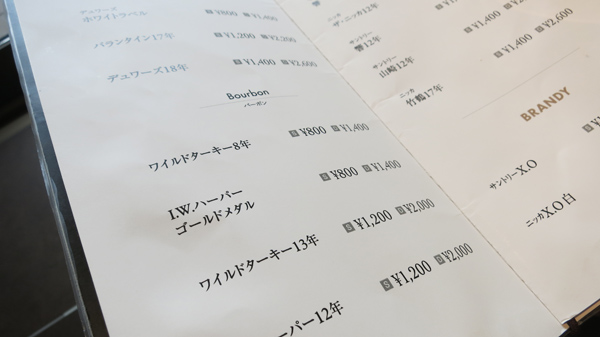 デュワーズ
ホワイトラベル
S ¥800 D ¥1,400
バランタイン17年
S ¥1,200 D ¥2,200
デュワーズ18年
S ¥1,400 D ¥2,600
Bourbon
バーボン
ワイルドターキー8年
S ¥800 D ¥1,400
I.W.ハーパー
ゴールドメダル
S ¥800 D ¥1,400
ワイルドターキー13年
S ¥1,200 D ¥2,000
ーパー12年
S ¥1,200 D ¥2,000
ニッカ
ザ・ニッカ12年
サントリー
響12年
¥1,400
サントリー
山崎12年
¥1,400 ¥2,600
ニッカ
竹鶴17年
¥1,400 ¥2,600
BRANDY
サントリーX.O
ニッカX.O 白